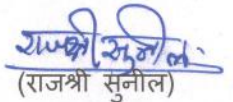 राजश्री सुनील
(राजश्री सुनील)